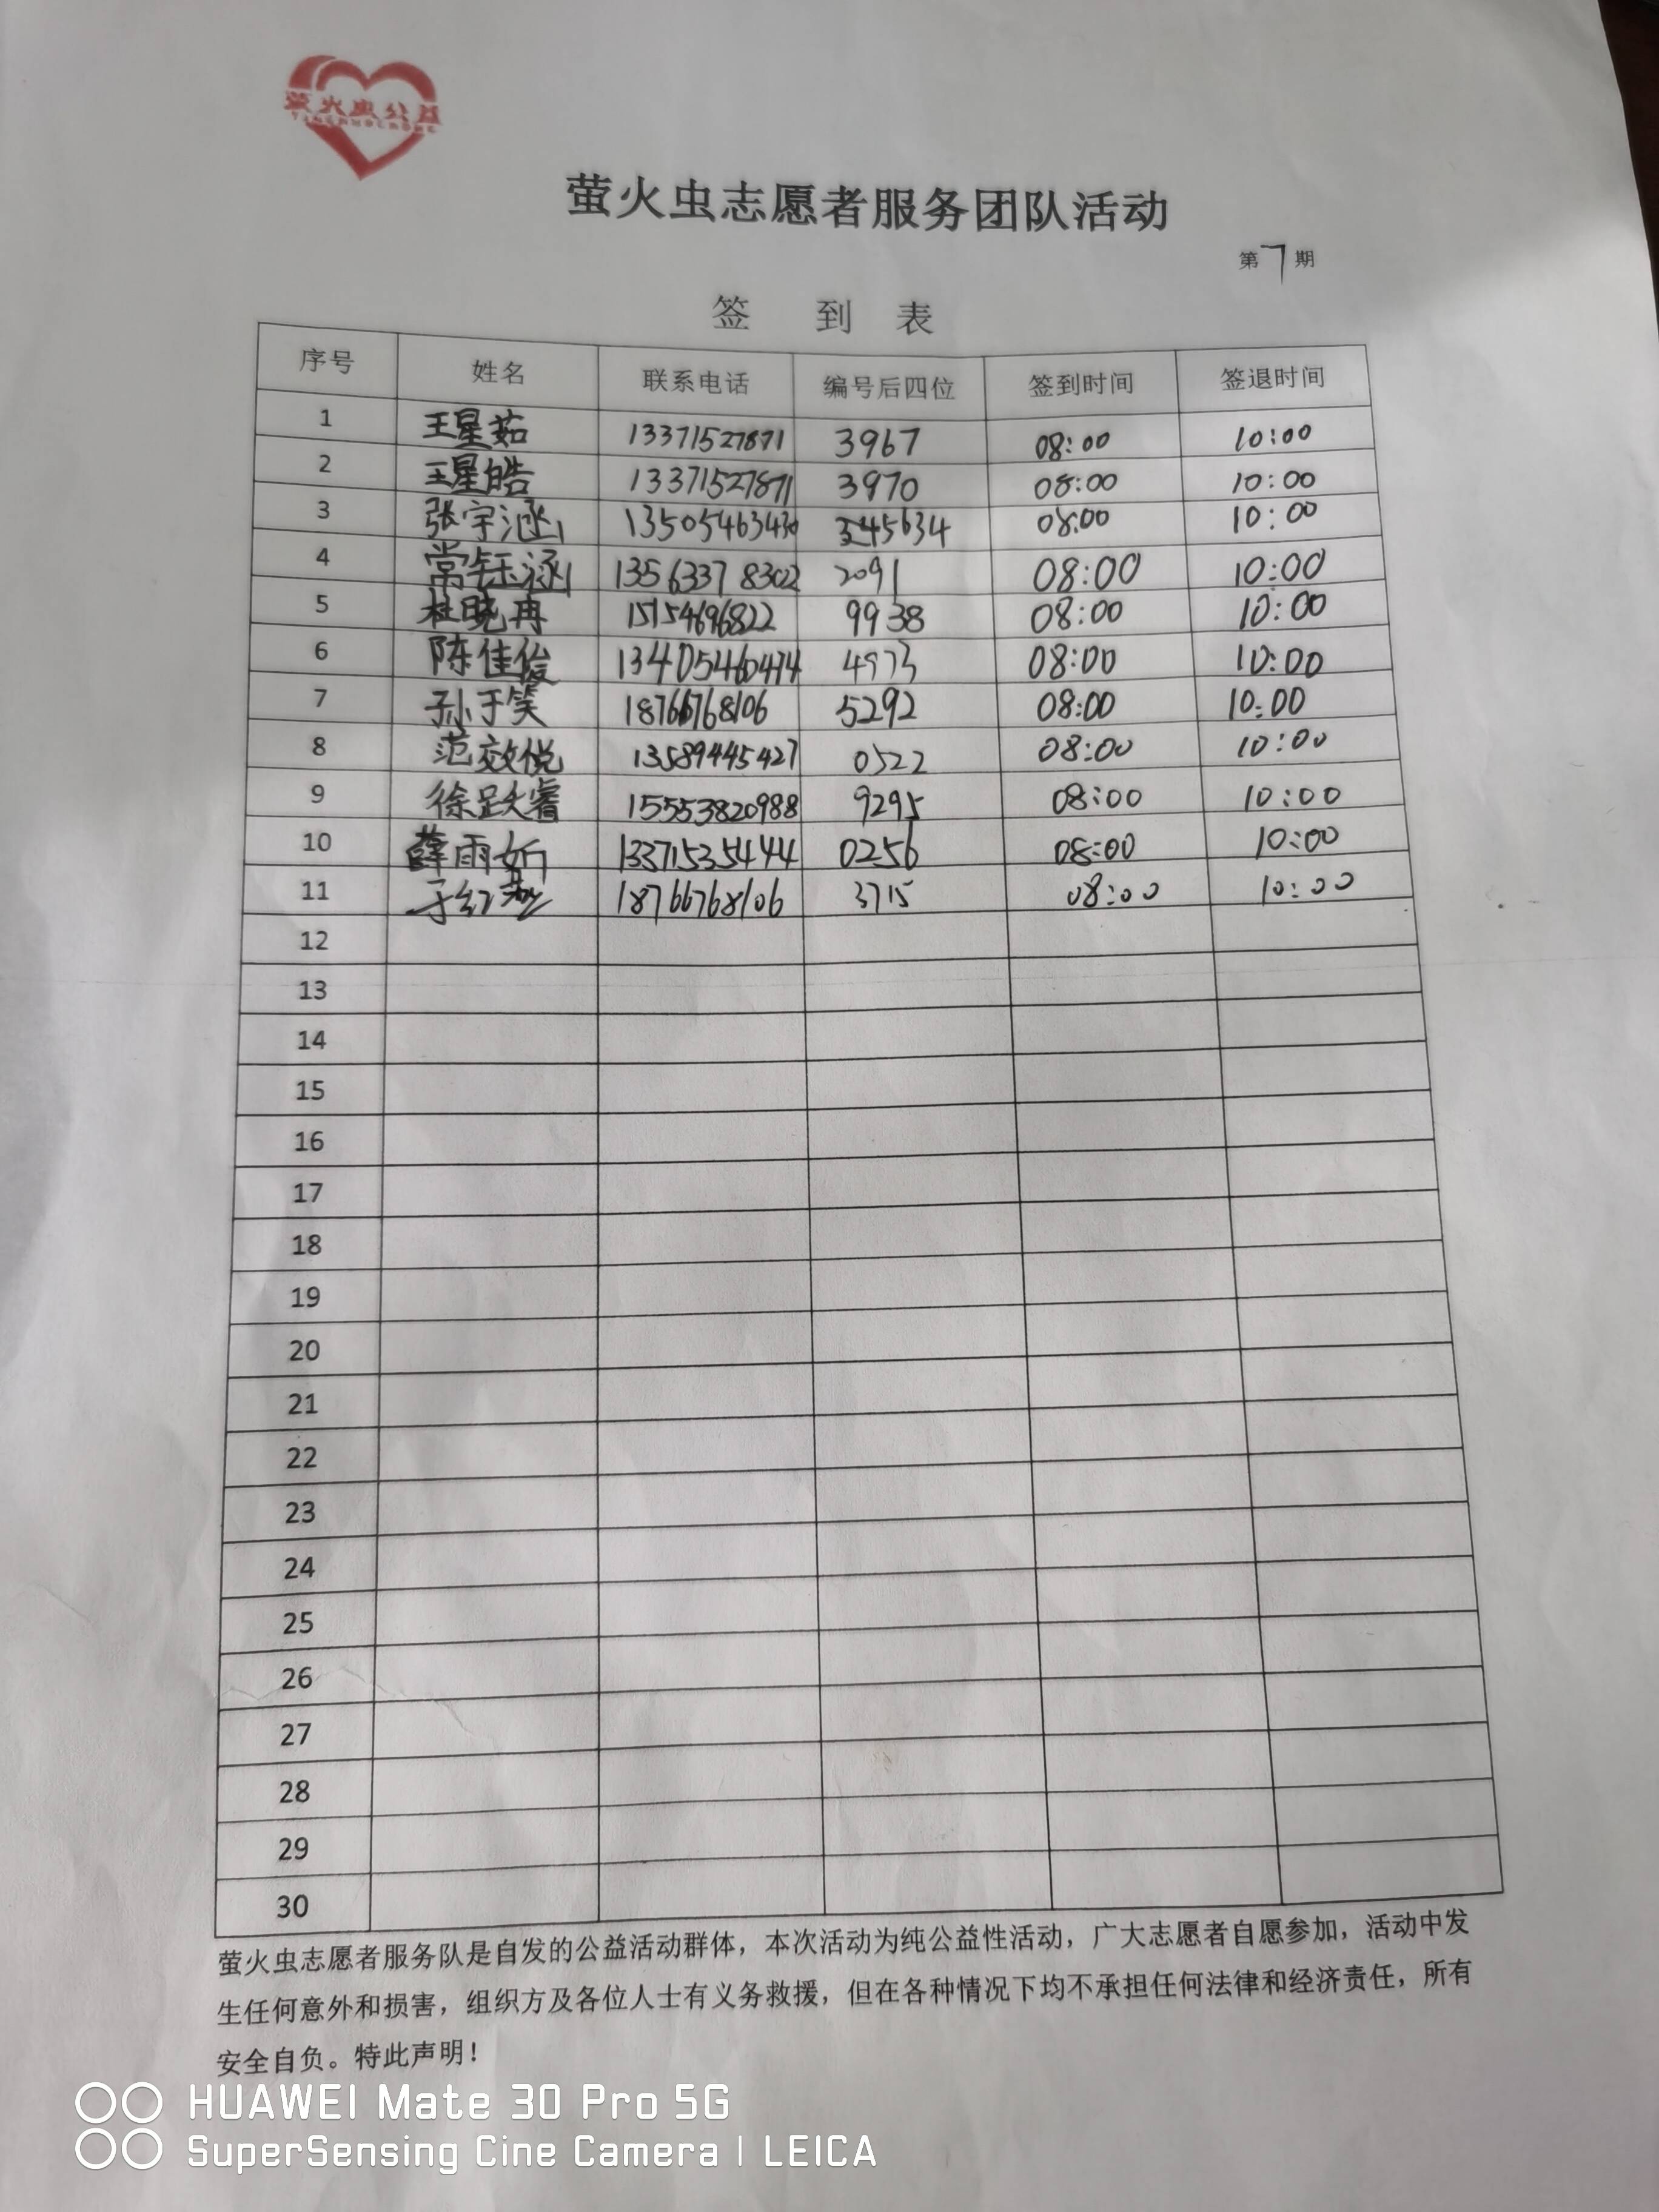 萤火虫公益
萤火虫志愿者服务团队活动
第7期
签 到 表
序号 姓名 联系电话 编号后四位 签到时间 签退时间
1 王星茹 13371527871 3967 08:00 10:00
2 王星皓 13371527871 3970 08:00 10:00
3 张宇涵 13505463430 45634 08:00 10:00
4 常钰涵 13563378302 2091 08:00 10:00
5 杜晓冉 15154696822 9938 08:00 10:00
6 陈佳俊 13405460474 4973 08:00 10:00
7 孙于笑 18766768106 5292 08:00 10:00
8 范效悦 13589445427 0522 08:00 10:00
9 徐跃睿 15553820988 9295 08:00 10:00
10 薛雨妡 13371535444 0256 08:00 10:00
11 于红 18766768106 3715 08:00 10:00
12
13
14
15
16
17
18
19
20
21
22
23
24
25
26
27
28
29
30
萤火虫志愿者服务队是自发的公益活动群体，本次活动为纯公益性活动，广大志愿者自愿参加，活动中发
生任何意外和损害，组织方及各位人士有义务救援，但在各种情况下均不承担任何法律和经济责任，所有
安全自负。特此声明！
HUAWEI Mate 30 Pro 5G
SuperSensing Cine Camera | LEICA